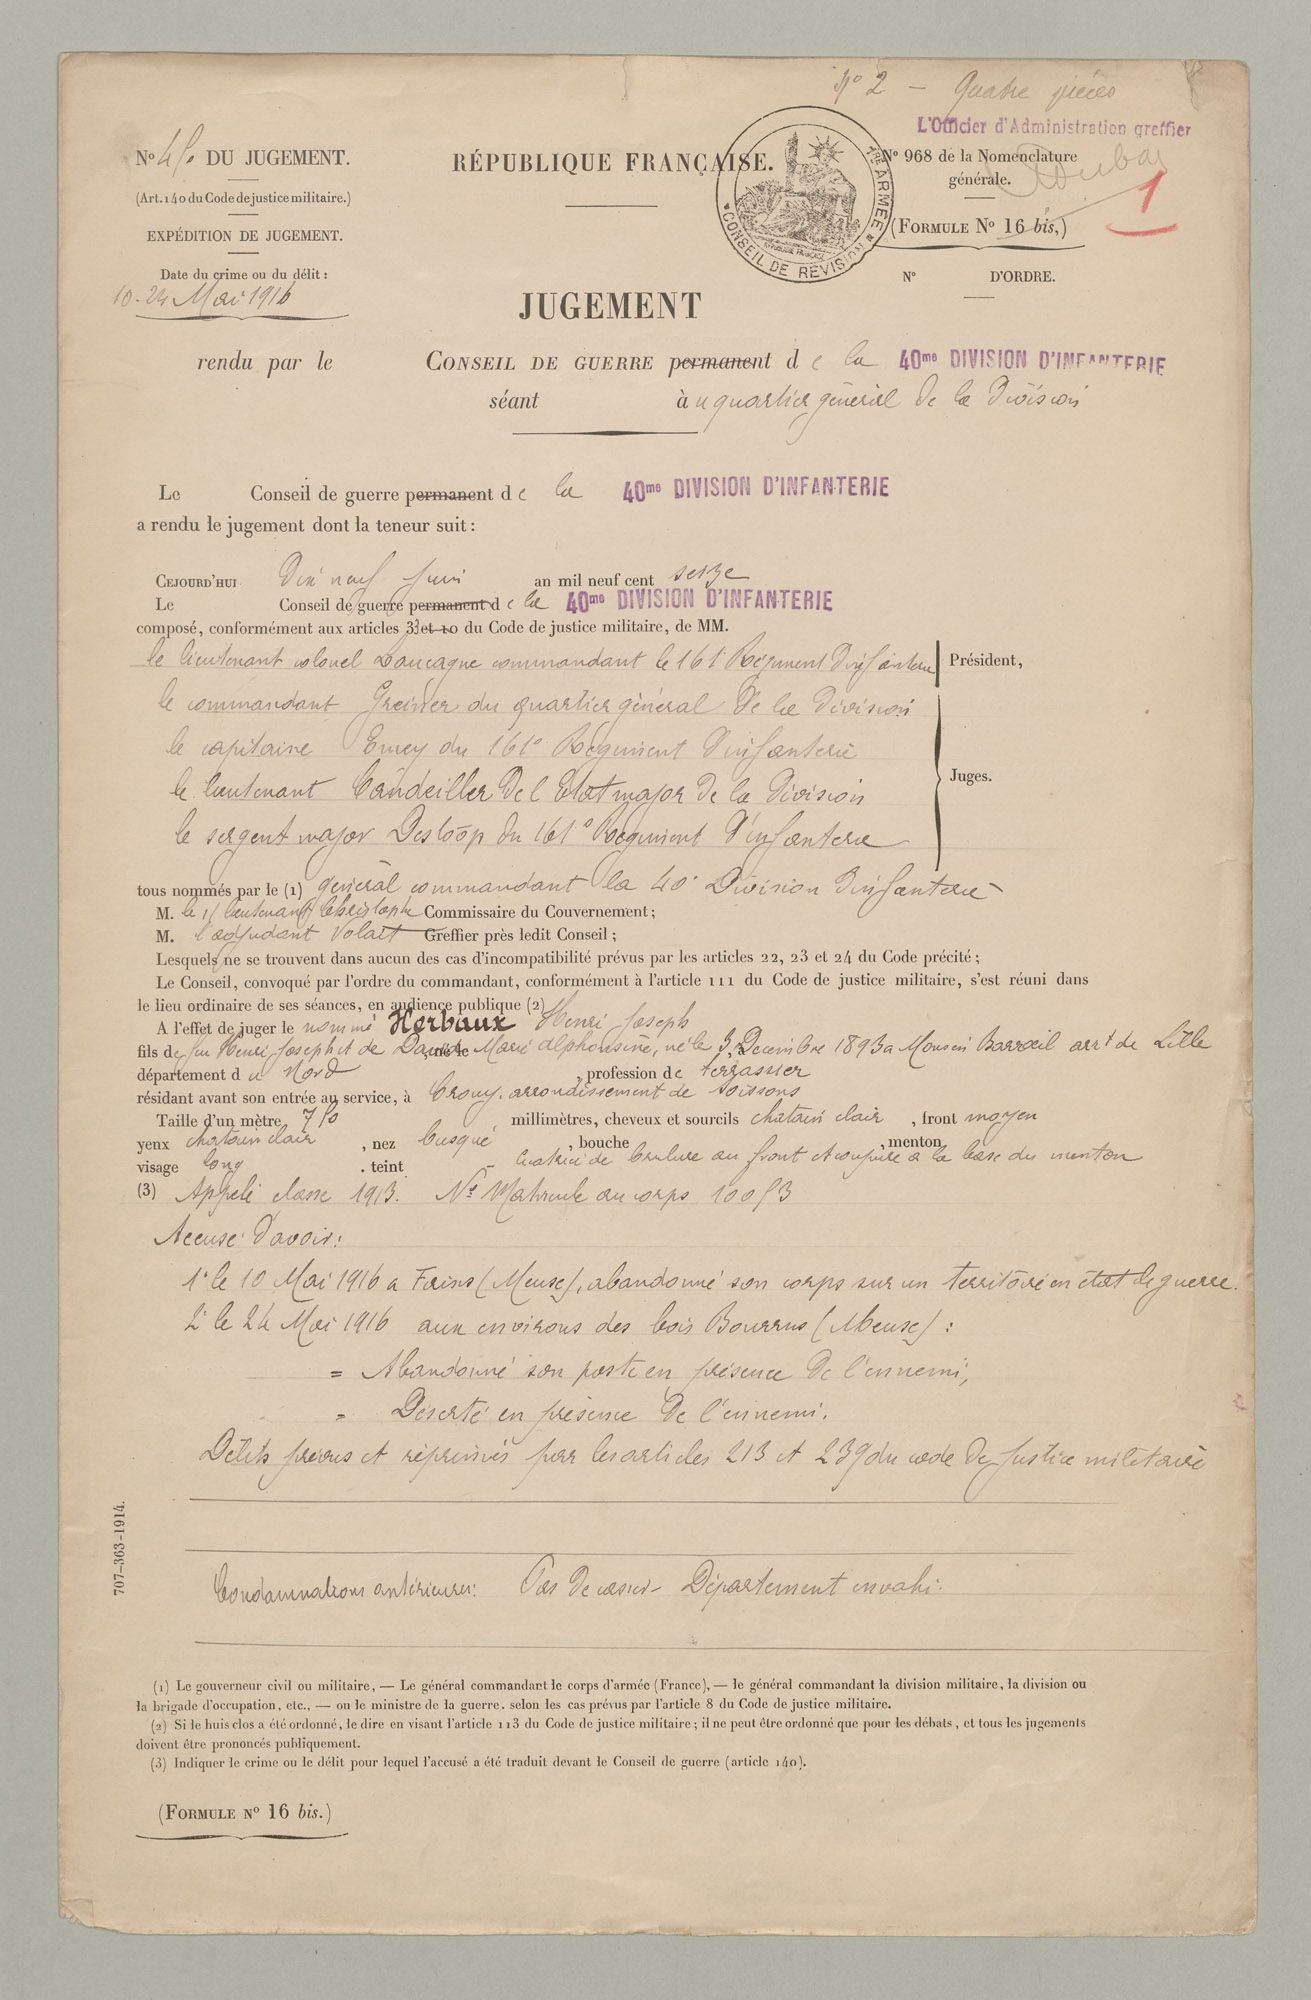 N° 2 — Quatre pièces
L'Officier d'Administration greffier
N° DU JUGEMENT.
RÉPUBLIQUE FRANÇAISE.
N° 968 de la Nomenclature
générale.
1
(Art. 140 du Code de justice militaire.)
1re ARMÉE
* CONSEIL DE REVISION *
(FORMULE N° 16 bis,)
EXPÉDITION DE JUGEMENT.
Date du crime ou du délit :
N° D'ORDRE.
10-24 Mai 1916
JUGEMENT
rendu par le CONSEIL DE GUERRE permanent de la 40me DIVISION D'INFANTERIE
séant au quartier général de la Division
Le Conseil de guerre permanent de la 40me DIVISION D'INFANTERIE
a rendu le jugement dont la teneur suit :
CEJOURD'HUI Dix neuf Juin an mil neuf cent seize
Le Conseil de guerre permanent de la 40me DIVISION D'INFANTERIE
composé, conformément aux articles 33 et 10 du Code de justice militaire, de MM.
le lieutenant colonel commandant le 161° Régiment d'infanterie Président,
le commandant Greiner du quartier général de la Division
le capitaine Emey du 161° Régiment d'infanterie
Juges.
le lieutenant Candeiller de l'Etat major de la Division
le sergent major Desloop du 161° Régiment d'infanterie
tous nommés par le (1) général commandant la 40° Division d'infanterie
M. le s/ lieutenant Christophe Commissaire du Gouvernement ;
M. l'adjudant Volait Greffier près ledit Conseil ;
Lesquels ne se trouvent dans aucun des cas d'incompatibilité prévus par les articles 22, 23 et 24 du Code précité ;
Le Conseil, convoqué par l'ordre du commandant, conformément à l'article 111 du Code de justice militaire, s'est réuni dans
le lieu ordinaire de ses séances, en audience publique (2)
A l'effet de juger le nommé Herbaux Henri Joseph
fils de feu Henri Joseph et de Marie Alphonsine, né le 3 Décembre 1893 a Arrt de Lille
département du Nord , profession de terrassier
résidant avant son entrée au service, à Crouy, arrondissement de Soissons
Taille d'un mètre millimètres, cheveux et sourcils chatain clair , front moyen
yeux chatain clair , nez busqué , bouche , menton
visage long . teint - Cicatrice de brulure au front et coupure a la base du menton
(3) Appelé classe 1913. N° Matricule au corps
Accusé d'avoir :
1° le 10 Mai 1916 a (Meuse), abandonné son corps sur un territoire en état de guerre.
2° le 24 Mai 1916 aux environs des bois Bourrus (Meuse) :
= Abandonné son poste en présence de l'ennemi,
= Déserté en présence de l'ennemi.
Délits prévus et réprimés par les articles 213 et 239 du code de Justice militaire
707-363-1914.
Condamnations antérieures : Pas de casier - Département envahi.
(1) Le gouverneur civil ou militaire, — Le général commandant le corps d'armée (France), — le général commandant la division militaire, la division ou
la brigade d'occupation, etc., — ou le ministre de la guerre. selon les cas prévus par l'article 8 du Code de justice militaire.
(2) Si le huis clos a été ordonné, le dire en visant l'article 113 du Code de justice militaire ; il ne peut être ordonné que pour les débats, et tous les jugements
doivent être prononcés publiquement.
(3) Indiquer le crime ou le délit pour lequel l'accusé a été traduit devant le Conseil de guerre (article 140).
(FORMULE N° 16 bis.)